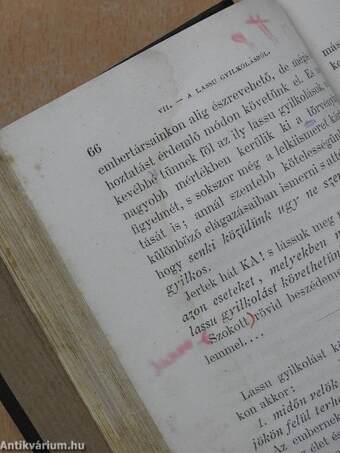 VII. — A LASSU GYILKOLÁSRÓL.
66
embertársainkon alig észrevehető, de mégis
hoztatást érdemlő módon követünk el. És
kevébbé tünnek föl az ily lassu gyilkolások
nagyobb mértékben kerülik ki a törvény
figyelmét, s sokszor még a lelkiismeret
tását is; annál szentebb kötelességünk
különböző elágazásaiban ismerni s
hogy senki közülünk ugy ne
gyilkos.
Jertek hát KA! s lássuk meg
azon eseteket, melyekben
lassu gyilkolást követhetün
Szokott rövid beszédem
lemmel....
Lassu gyilkolást k
kon akkor;
1. midőn velök
jökön felül terhe
Az embernek
élet és
más
Antikvárium.hu